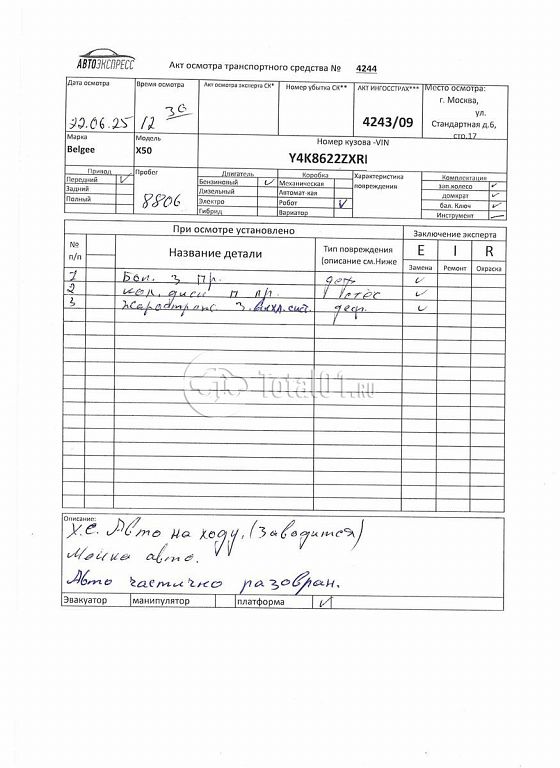 АВТОЭКСПРЕСС
Акт осмотра транспортного средства № 4244
Дата осмотра
22.06.25
Время осмотра
12 30
Акт осмотра эксперта СК*
Номер убытка СК**
АКТ ИНГОССТРАХ***
4243/09
Место осмотра:
г. Москва,
ул.
Стандартная д.6,
стр.17
Марка
Belgee
Модель
X50
Номер кузова -VIN
Y4K8622ZXRI
Привод
Передний
Задний
Полный
Пробег
8806
Двигатель
Бензиновый
Дизельный
Электро
Гибрид
Коробка
Механическая
Автомат-кая
Робот
Вариатор
Характеристика
повреждения
Комплектация
зап.колесо
домкрат
бал. Ключ
Инструмент
При осмотре установлено
Заключение эксперта
№
п/п
Название детали
Тип повреждения
(описание см.Ниже
E I R
Замена Ремонт Окраска
1 Бок. З пр.
2 диск п пр.
3 З. деф.
Total01.RU
Описание:
Х.С. Авто на ходу, (Заводится)
Мойка авто.
Авто частично разобран.
Эвакуатор манипулятор платформа